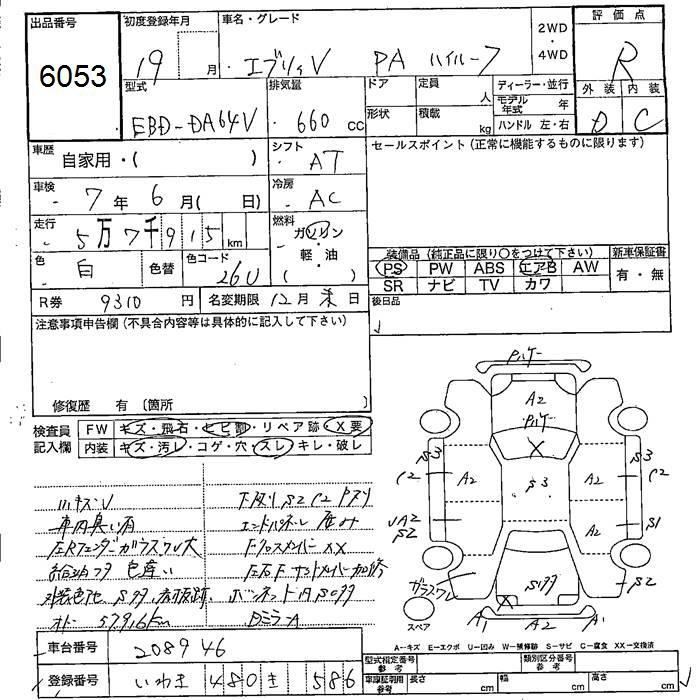 出品番号
6053
初度登録年月
19 月
車名・グレード
エブリィV PA ハイルーフ
2WD
・
4WD
評価点
R
型式
EBD-DA64V
排気量
660 cc
ドア
定員
人
ディーラー・並行
形状
積載
kg
モデル年式 年
ハンドル 左・右
外装 内装
D C
車歴
自家用・( )
シフト
AT
セールスポイント(正常に機能するものに限ります)
車検
7 年 6 月( 日)
冷房
AC
走行
5万7千915 km
燃料
ガソリン
・
軽・油
( )
色
白
色替
色コード
26U
装備品(純正品に限り○をつけて下さい)
PS PW ABS エアB AW
SR ナビ TV カワ
新車保証書
有・無
R券 9310 円
名変期限 12月末日
後日品
注意事項申告欄(不具合内容等は具体的に記入して下さい)
修復歴 有 〔箇所
検査員記入欄
FW キズ・飛石・ヒビ割・リペア跡・X要
内装 キズ・汚レ・コゲ・穴・スレ・キレ・破レ
ハキズ・V
車内臭い有
給油フタ 色違い
オドー 57916km
下廻り S2 C2 Pズリ
エンドパネル
Fクロスメンバー XX
DミラーA
車台番号 208946
登録番号 いわき 480 き 586
型式指定番号
参考
類別区分番号
参考
車庫証明用
参考
長さ cm
幅 cm
高さ cm
A2
X
S3
S3
C2
A2
A2
C2
A2
S1
S2
S2
ガラスワレ
スペア
X
A1 A2 A1
A…キズ E…エクボ U…凹み W…補修跡 S…サビ C…腐食 XX…交換済